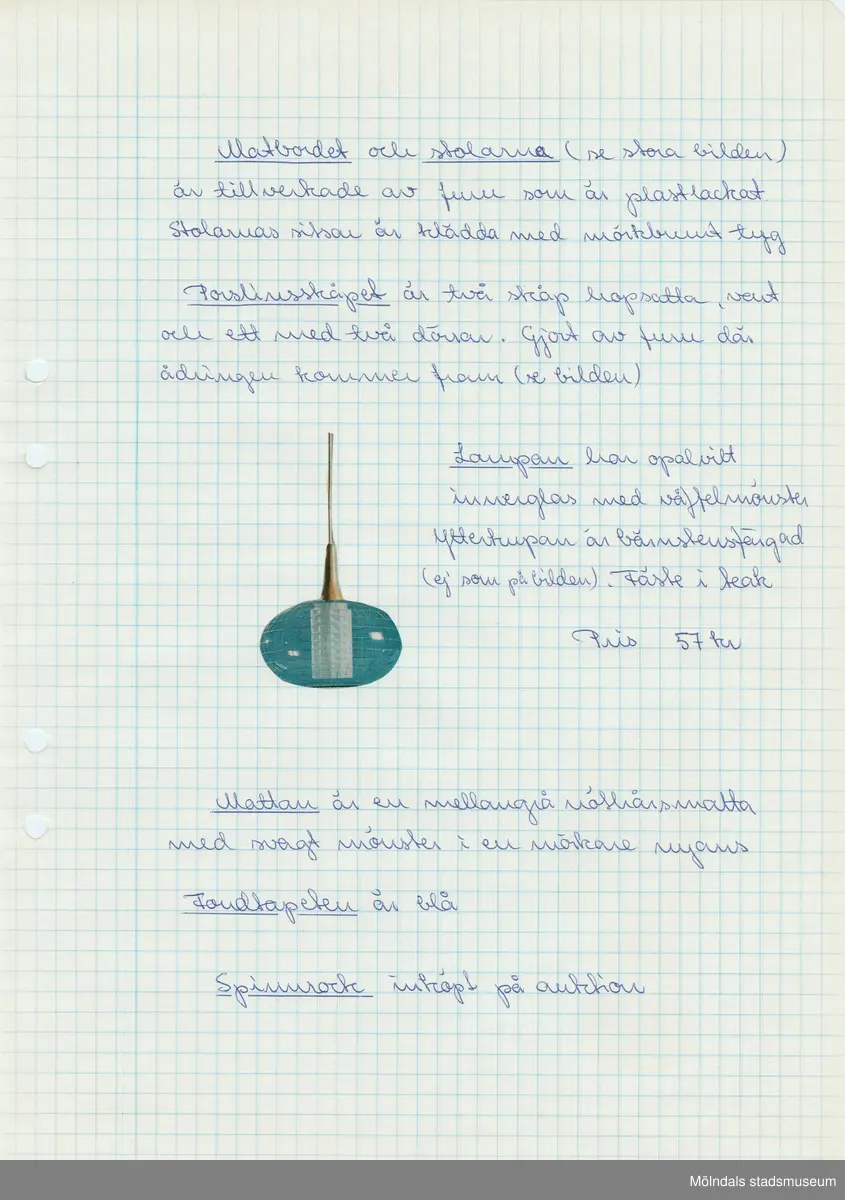 Matbordet och stolarna (se stora bilden)
är tillverkade av furu som är plastlackat
Stolarnas sitsar är klädda med mörkbrunt tyg
Porslinsskåpet är två skåp hopsatta,
och ett med två dörrar. Gjort av furu där
ådringen kommer fram (se bilden)
Lampan har opalvitt
innerglas med våffelmönster
Ytterkupan är bärnstensfärgad
(ej som på bilden). Fäste i teak
Pris 57 kr
Mattan är en mellangrå nöthårsmatta
med svagt mönster i en mörkare nyans
Fondtapeten är blå
Spinnrock inköpt på auktion
Mölndals stadsmuseum